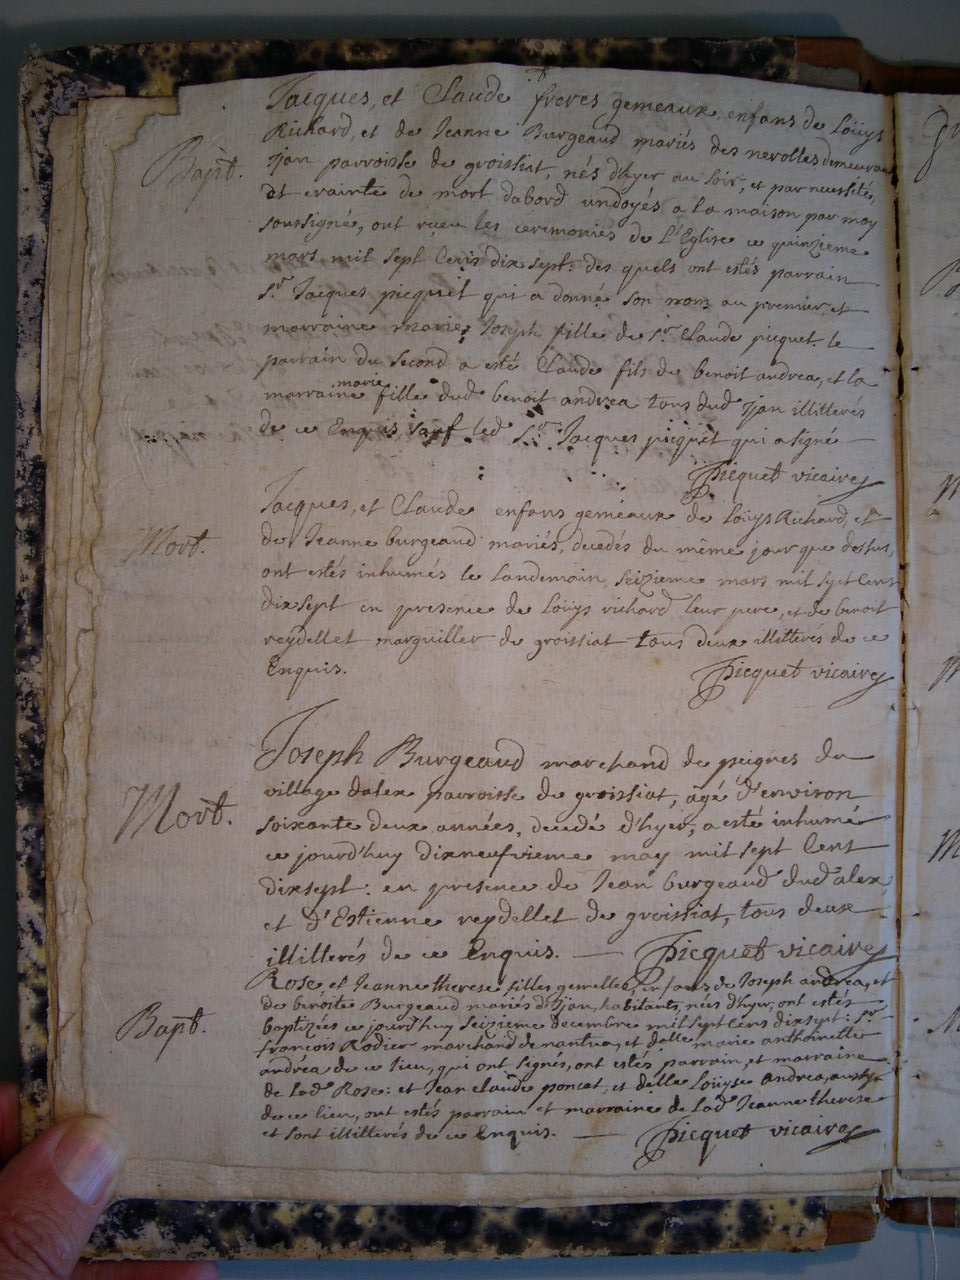 Bapt.
Jacques, et Claude freres gemeaux, enfans de Loüys
Richard, et de Jeanne Burgeaud mariés des nerolles demeurans
ijan parroisse de groissiat, nés d'hyer au soir, et par necessité,
et crainte de mort dabord undoyés a la maison par moy
soussigné, ont reçeu les ceremonies de L'Eglise ce quinzieme
mars mil sept Cens dix sept: des quels ont estés parrain
Sr. Jacques picquet qui a donné son nom au premier, et
marraine marie Joseph fille de Sr. Claude picquet. le
parrain du second a esté Claude fils de benoit andrea, et la
marraine marie fille dud. benoit andrea tous dud. ijan illitterés
de ce Enquis sauf led. Sr. Jacques picquet qui a signé
Picquet vicaire
Mort.
Jacques, et Claude enfans gemeaux de Loüys Richard, et
de Jeanne burgeaud mariés, decedés du même jour que dessus,
ont estés inhumés le landemain seizieme mars mil sept Cens
dix sept en presence de Loüys richard leur pere, et de benoit
reydellet marguiller de groissiat tous deux illitterés de ce
Enquis.
Picquet vicaire
Mort.
Joseph Burgeaud marchand de peignes du
village dalex parroisse de groissiat, âgé d'environ
soixante deux années, decedé d'hyer, a esté inhumé
ce jourd'huy dixneufvieme may mil sept Cent
dixsept: en presence de Jean burgeaud dud. alex
et d'Estienne reydellet de groissiat, tous deux
illitterés de ce Enquis. Picquet vicaire
Bapt.
Rose, et Jeanne therese filles gemelles, enfans de Joseph andrea, et
de benoite Burgeaud mariés d'Ijan, habitants, nées d'hyer, ont estés
baptizées ce jourd'huy seizieme decembre mil sept Cens dixsept: Sr.
françois Rodier marchand de nantua, et dalle marie anthoinette
andréa de ce lieu, qui ont signés, ont estés parrain, et marraine
de lad. Rose: et Jean claude poncet, et delle Loüyse andrea, aussy
de ce lieu, ont estés parrain et marraine de lad. Jeanne therese
et sont illitterés de ce Enquis. Picquet vicaire